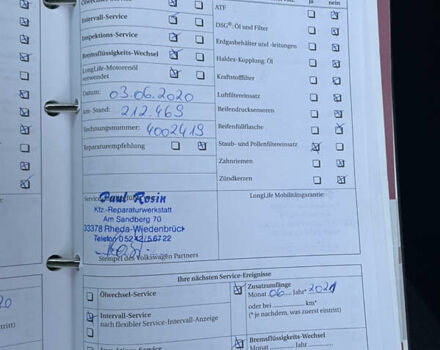 Ölwechsel-Service
ja nein
Intervall-Service
Inspektions-Service
Bremsflüssigkeits-Wechsel
LongLife-Motorenöl
verwendet
Datum: 03.06.2020
km-Stand: 212.469
Rechnungsnummer: 4002419
Reparaturempfehlung
ATF
DSG®: Öl und Filter
Erdgasbehälter und -leitungen
Haldex-Kupplung: Öl
Kraftstofffilter
Luftfiltereinsatz
Reifendrucksensoren
Reifenfüllflasche
Staub- und Pollenfiltereinsatz
Zahnriemen
Zündkerzen
LongLife Mobilitätsgarantie:
Paul Rosin
Kfz.-Reparaturwerkstatt
Am Sandberg 70
33378 Rheda-Wiedenbrück
Telefon 05242/56722
Stempel des Volkswagen Partners
Ihre nächsten Service-Ereignisse
Ölwechsel-Service
Intervall-Service
nach flexibler Service-Intervall-Anzeige
Zusatzumfänge
Monat 06 Jahr* 2021
oder bei km*
(* je nachdem, was zuerst eintritt)
Bremsflüssigkeits-Wechsel
Monat Jahr